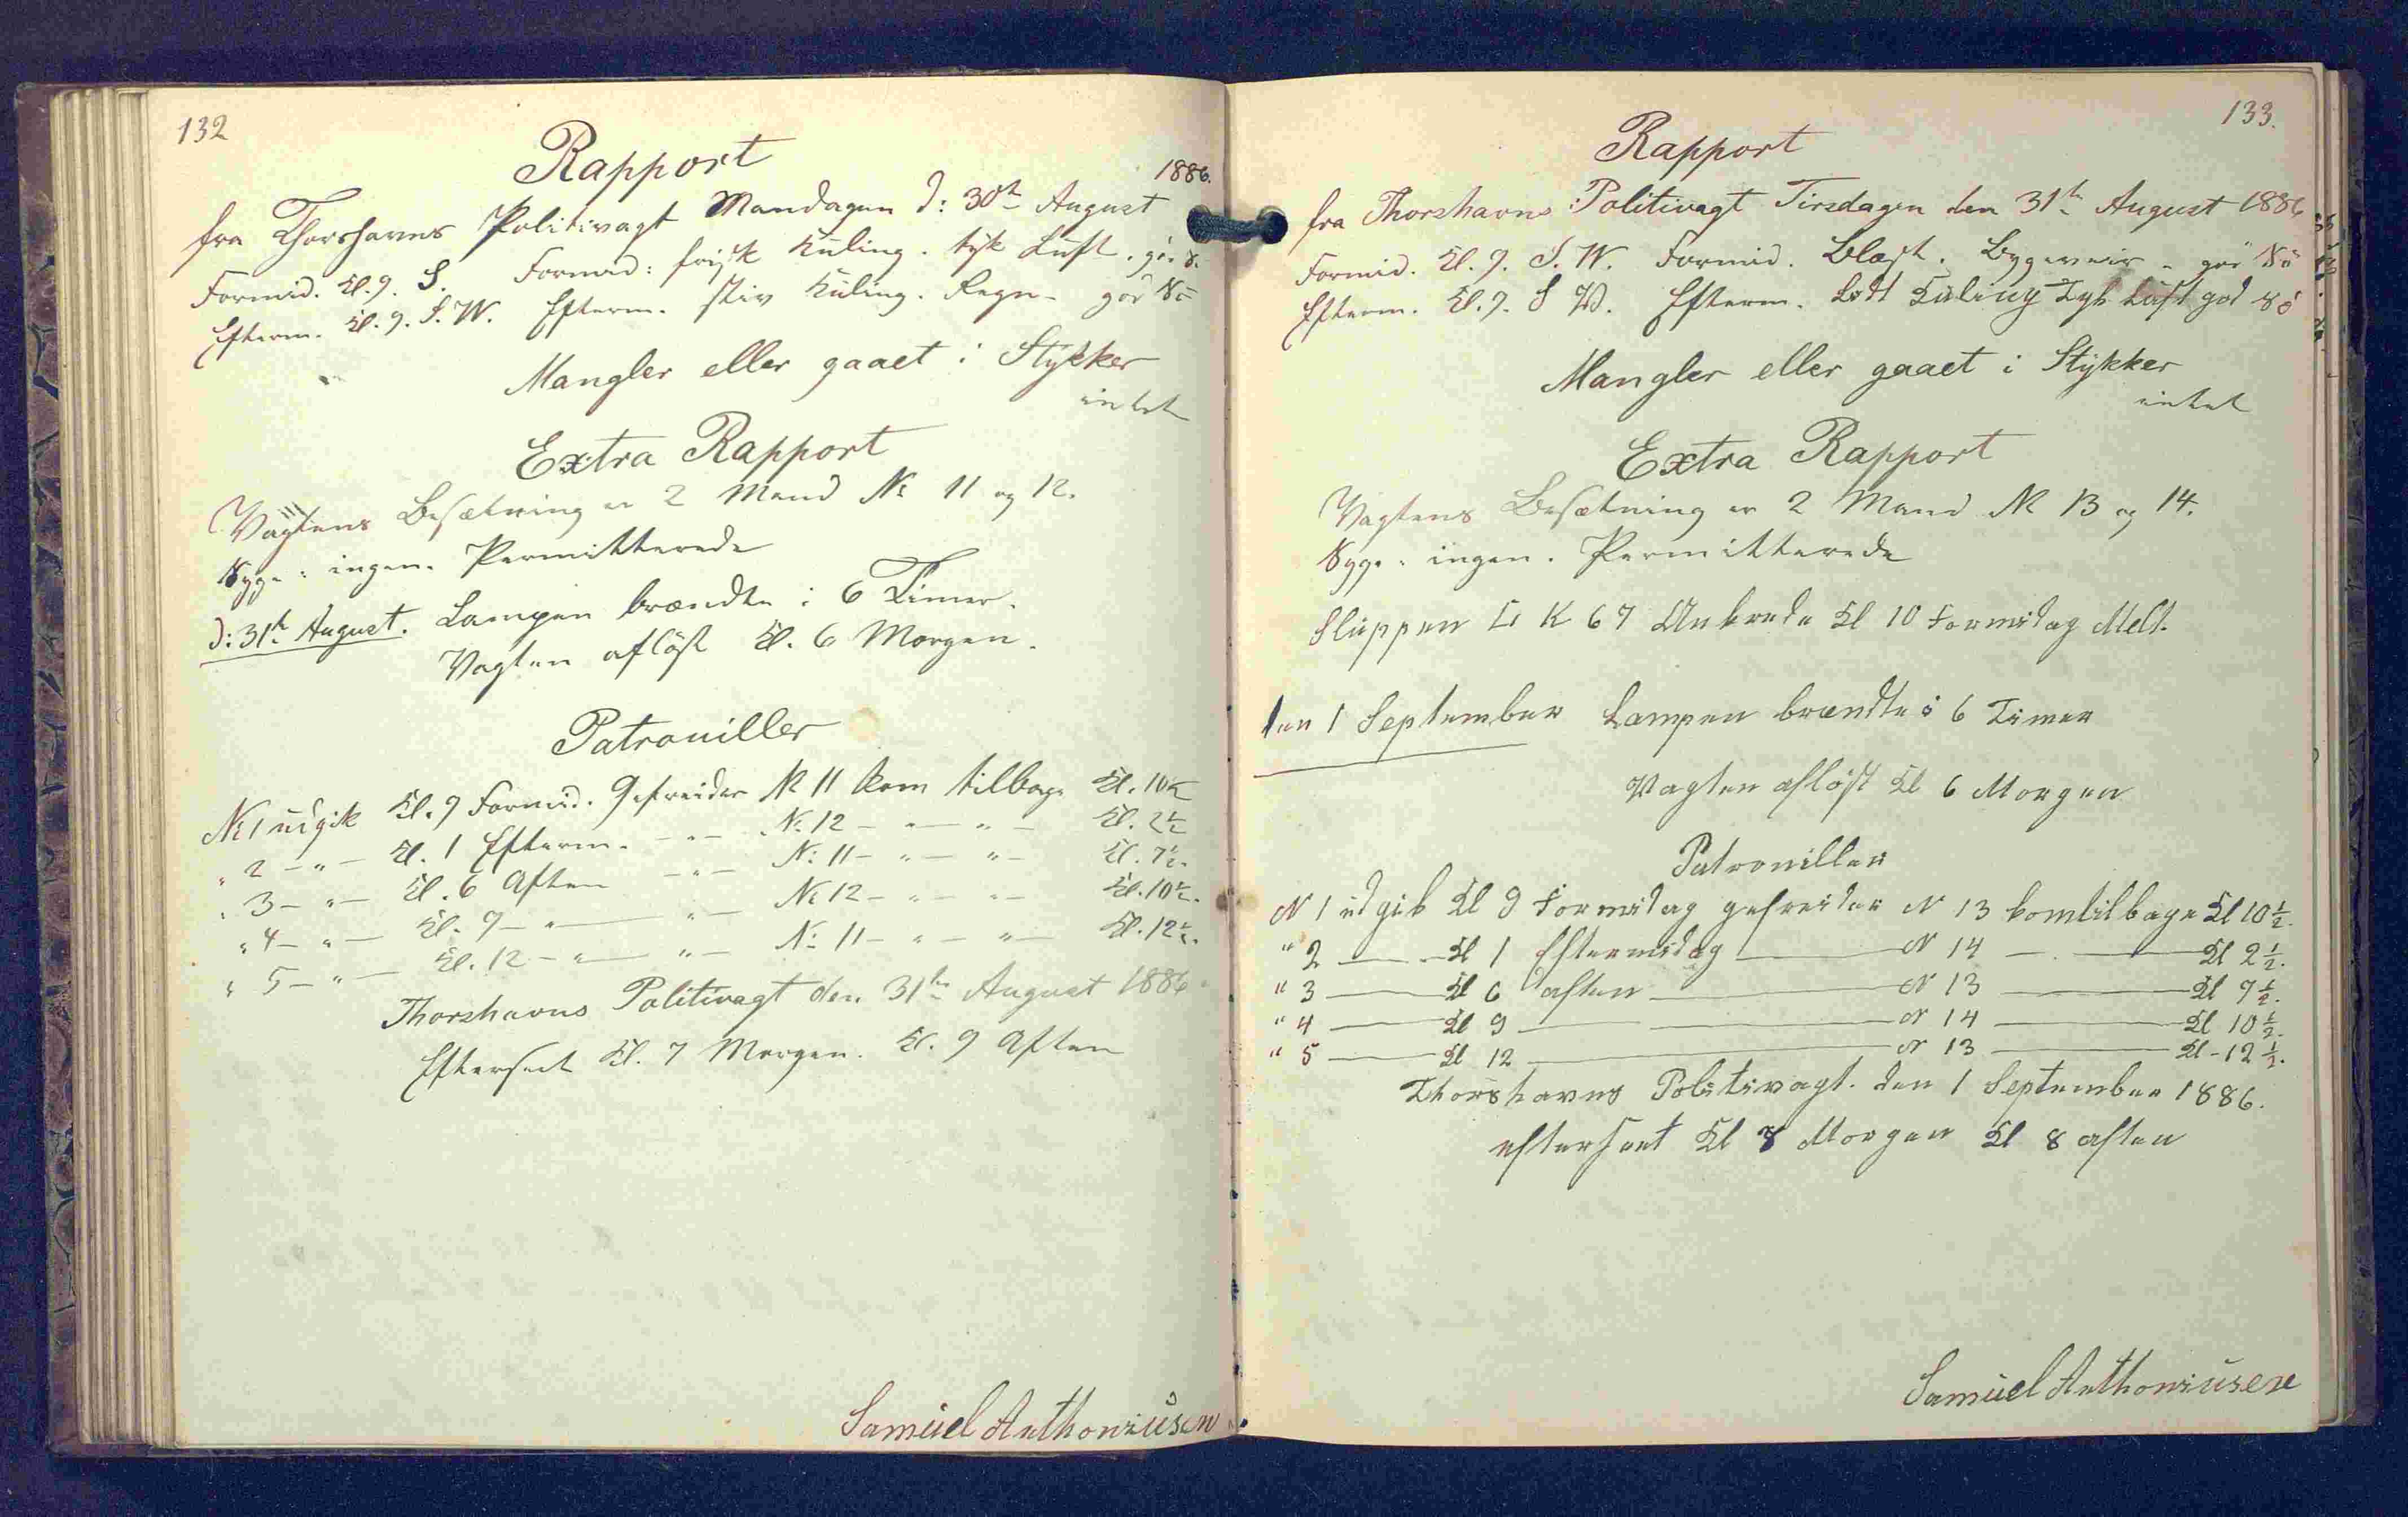 132
Rapport
1886.
fra Thorshavns Politivagt Mandagen d: 30th August
Formid. Kl. 9. S. Formid: frisk Kuling. tyk Luft. gd. S.
Efterm. Kl. 9. S.W. Efterm. stiv Kuling. Regn - god Sö
Mangler eller gaaet i Stykker
intet
Extra Rapport
Vagtens Besætning er 2 Mand № 11 og 12.
Syge: ingen. Permitterede
d: 31th August. Lampen brændte i 6 Timer.
Vagten aflöst Kl. 6 Morgen.
Patrouiller
№ 1 udgik Kl. 9 Formid. Gefreider № 11 kom tilbage Kl. 10½
" 2 - " - Kl. 1 Efterm. - " - №: 12 - " - " - Kl. 2½
" 3 - " - Kl. 6 Aften - " - №: 11 - " - " - Kl. 7½.
" 4 - " - Kl. 9 - " - " - № 12 - " - " - Kl. 10½.
" 5 - " - Kl. 12 - " - " - №: 11 - " - " - Kl. 12½.
Thorshavns Politivagt den 31th August 1886
Efterseet Kl. 7 Morgen. Kl. 9 Aften
Samuel Anthoniusen
133.
Rapport
fra Thorshavns Politivagt Tirsdagen den 31th August 1886
Formid. Kl. 9. S.W. Formid. Blæst. Bygeveir - god Sö
Efterm. Kl. 9. S W. Efterm. Lidt Kuling Tyk Luft god Sö
Mangler eller gaaet i Stykker
intet
Extra Rapport
Vagtens Besætning er 2 Mand № 13 og 14.
Syge: ingen. Permitterede
Sluppen K 67 Ankrede Kl 10 Formidag Melt.
den 1 September Lampen brændte i 6 Timer
Vagten aflöst Kl 6 Morgen
Patrouiller
N 1 udgik Kl 9 Formidag gefreider N 13 kom tilbage Kl 10½.
" 2 — Kl 1 Eftermidag — N 14 — Kl 2½.
" 3 — Kl 6 aften — N 13 — Kl 7½.
" 4 — Kl 9 — N 14 — Kl 10½.
" 5 — Kl 12 — N 13 — Kl - 12½.
Thorshavns Politivagt. den 1 September 1886.
efterseet Kl 8 Morgen Kl 8 aften
Samuel Anthoniusen